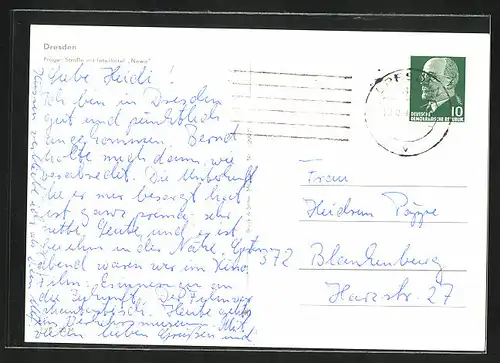 Dresden
Prager Straße mit Interhotel „Newa"
Liebe Heidi!
Ich bin in Dresden
gut und pünktlich
angekommen. Bernd
holte mich dann, wie
verabredet. Die Unterkunft
die er mir besorgt hat
ist ganz prima, sehr
nette Leute und es ist
bei ihm in der Nähe. Gestern
abend waren wir im Kino.
Film: Erinnerungen an
die Zukunft. Der Film war
phantastisch. Heute gehts
ins Verkehrsmuseum. Mit
vielen lieben Grüßen und
DRESDEN
DEUTSCHE
DEMOKRATISCHE REPUBLIK
10
Frau
Heidrun Pappe
372 Blankenburg
Harzstr. 27